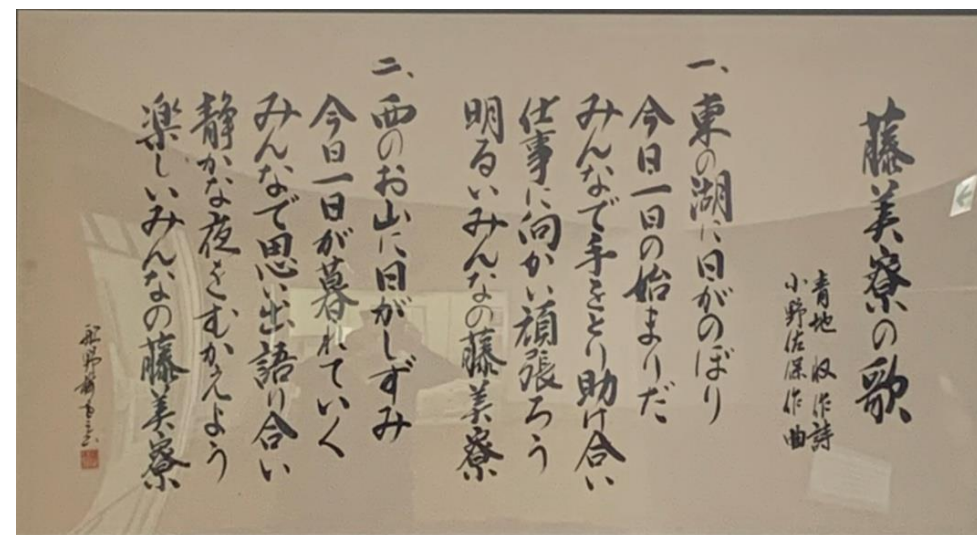 藤美寮の歌
青地 収 作詩
小野佐保 作曲
一、
東の湖に日がのぼり
今日一日の始まりだ
みんなで手をとり助け合い
仕事に向かい頑張ろう
明るいみんなの藤美寮
二、
西のお山に日がしずみ
今日一日が暮れていく
みんなで思い出語り合い
静かな夜をむかえよう
楽しいみんなの藤美寮